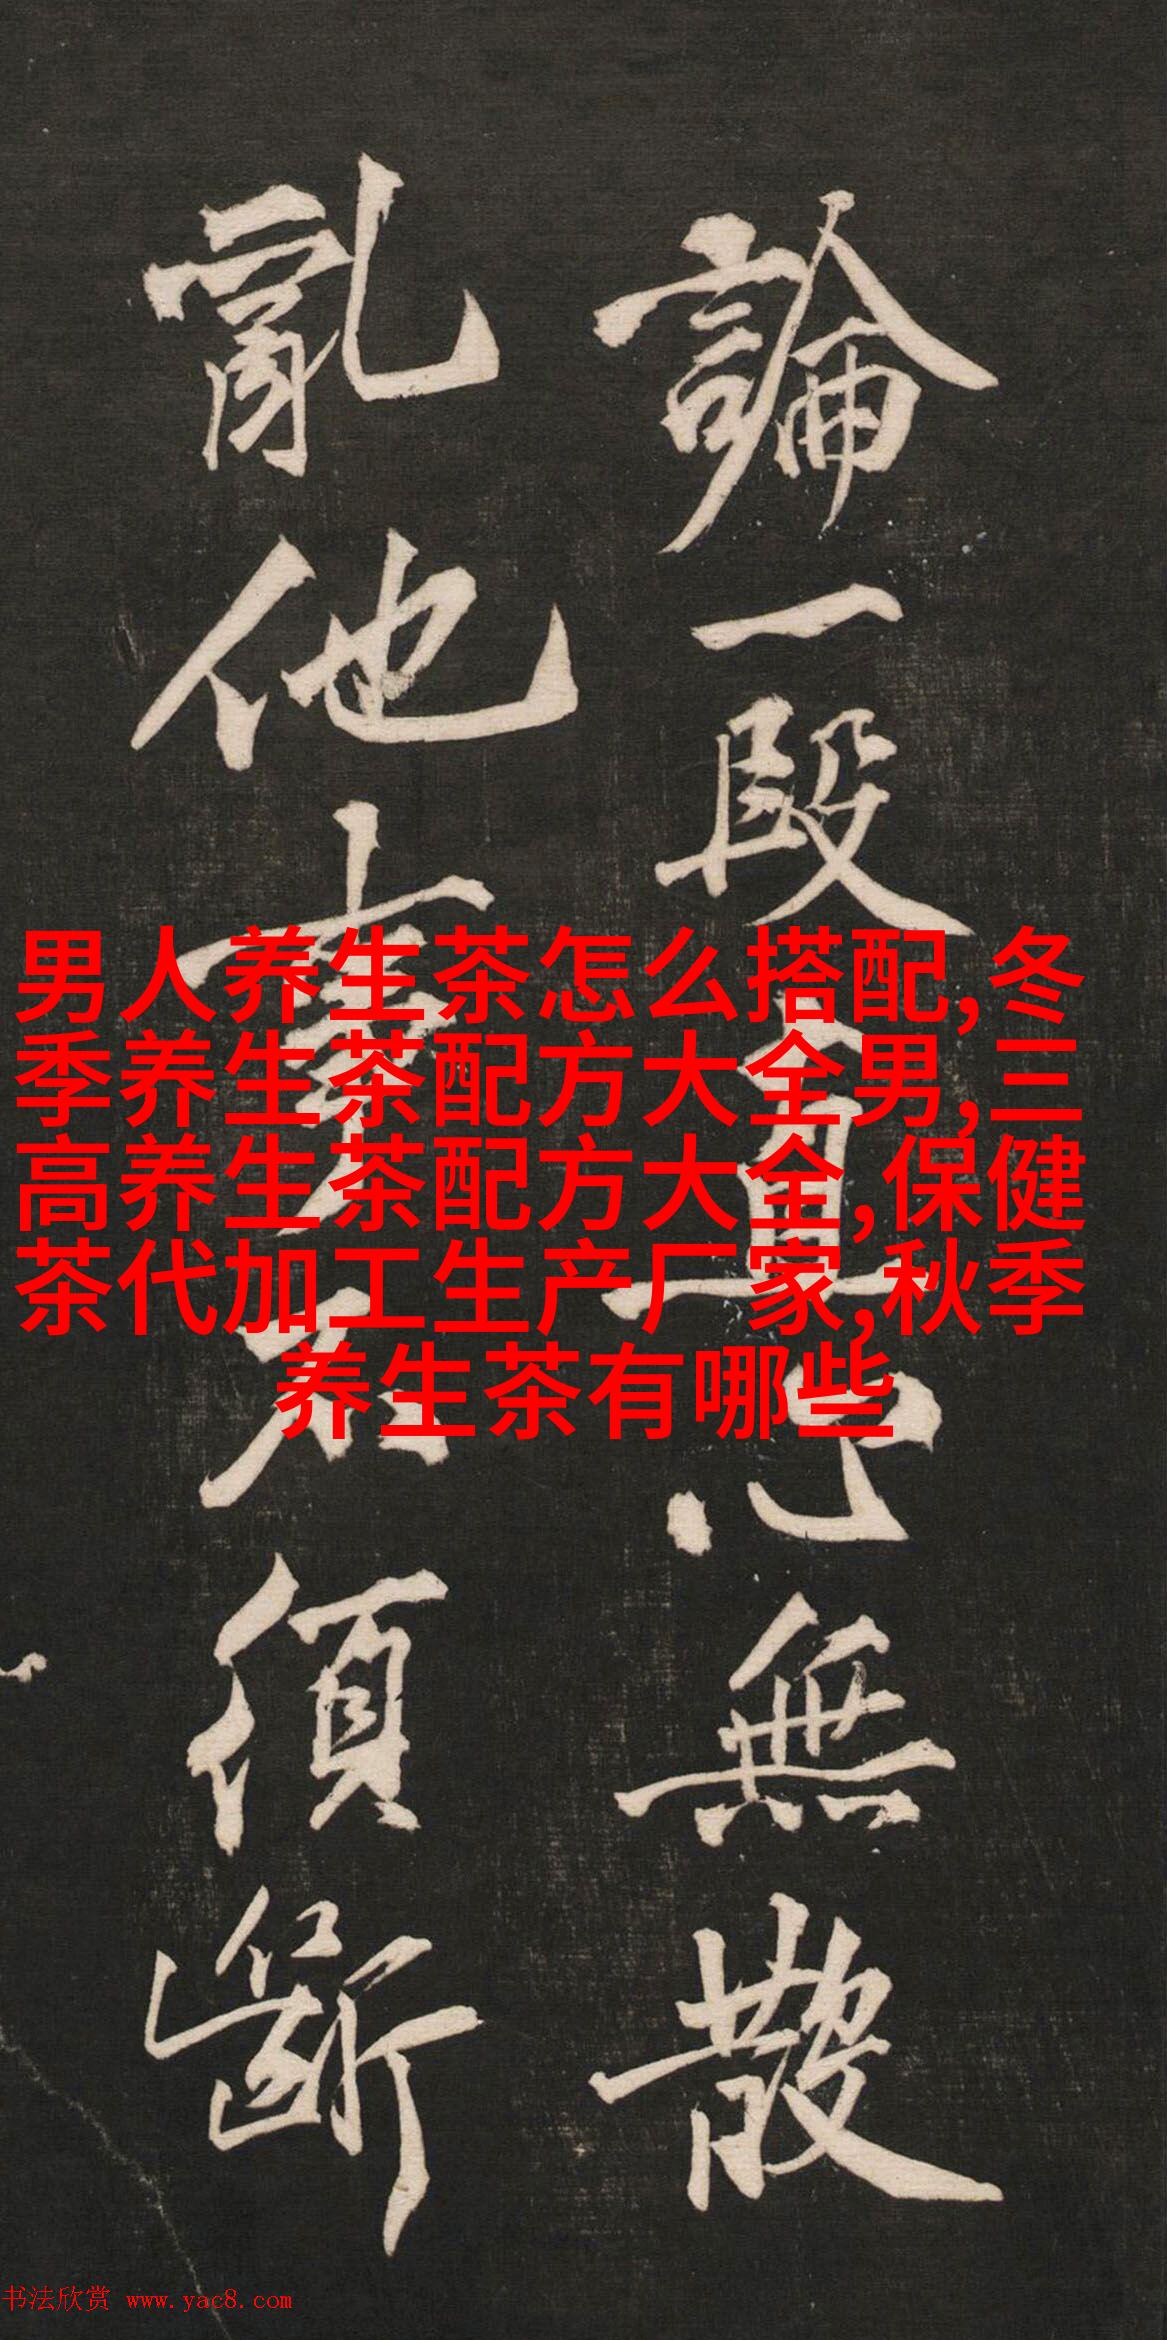 論一段直心無散
亂他事不須斷
男人养生茶怎么搭配,冬
季养生茶配方大全男,三
高养生茶配方大全,保健
茶代加工生产厂家,秋季
养生茶有哪些
书法欣赏 www.yac8.com